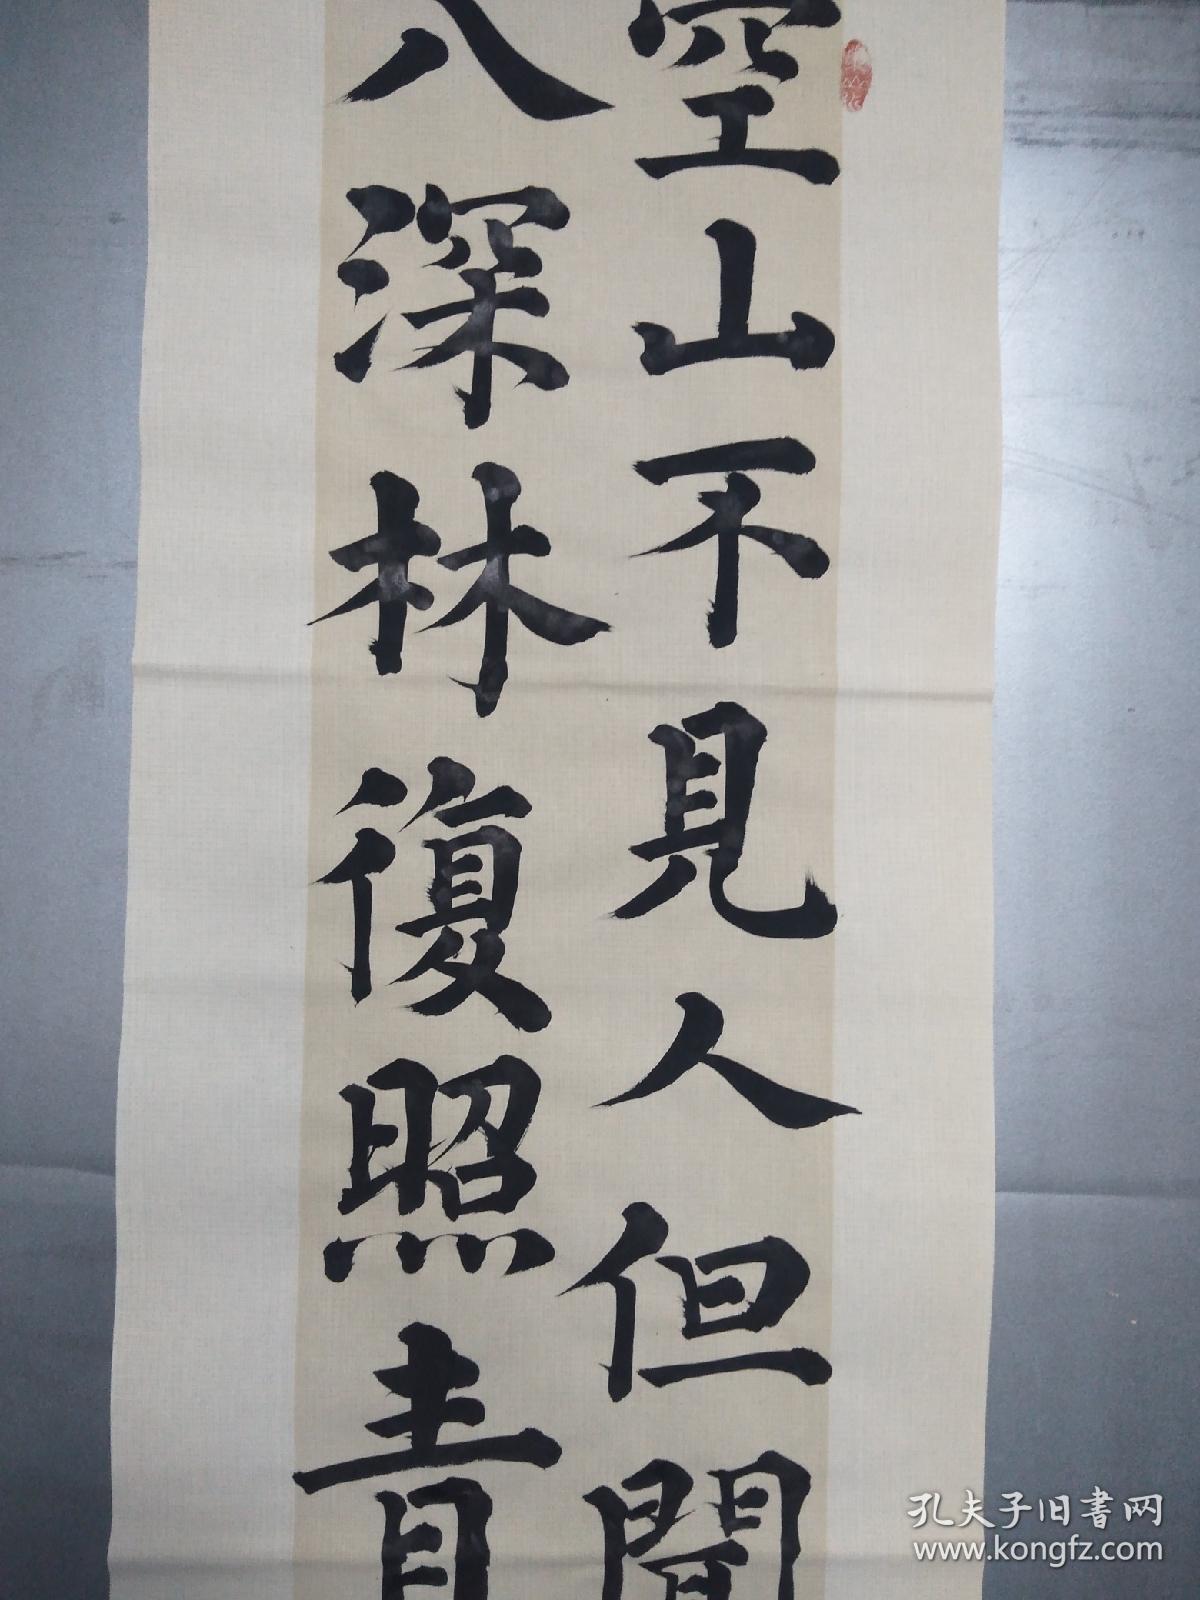 空山不見人但聞
入深林復照青
孔夫子旧書网
www.kongfz.com